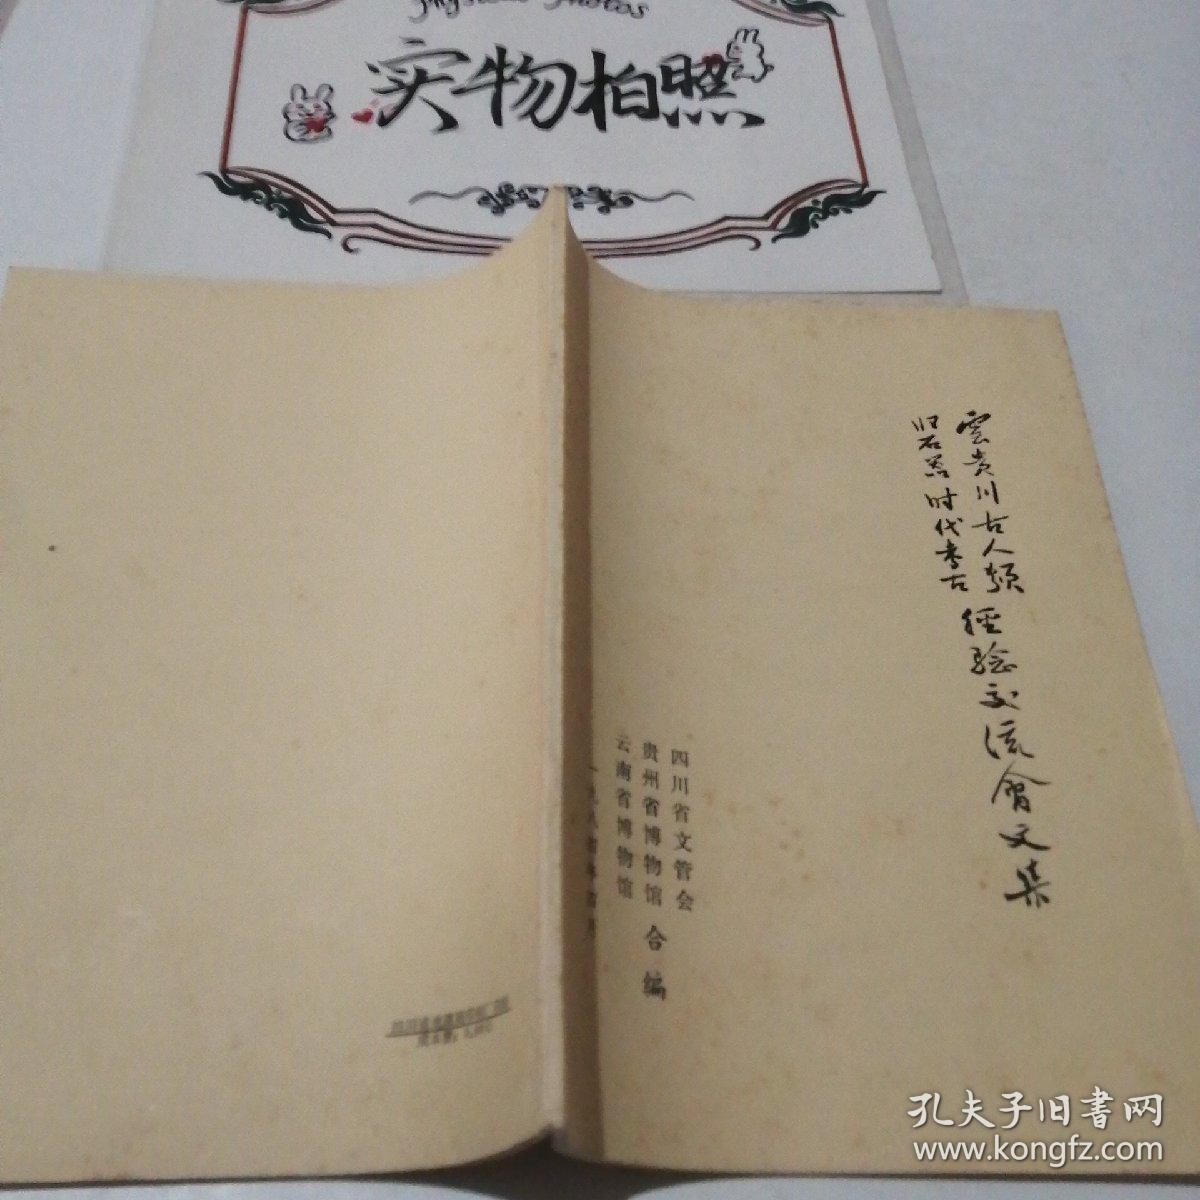 Physical Photos
实物拍照
雲贵川古人類
旧石器时代考古
经验交流會文集
四川省文管会
贵州省博物馆
云南省博物馆
合编
一九八四年四月
孔夫子旧书网
www.kongfz.com